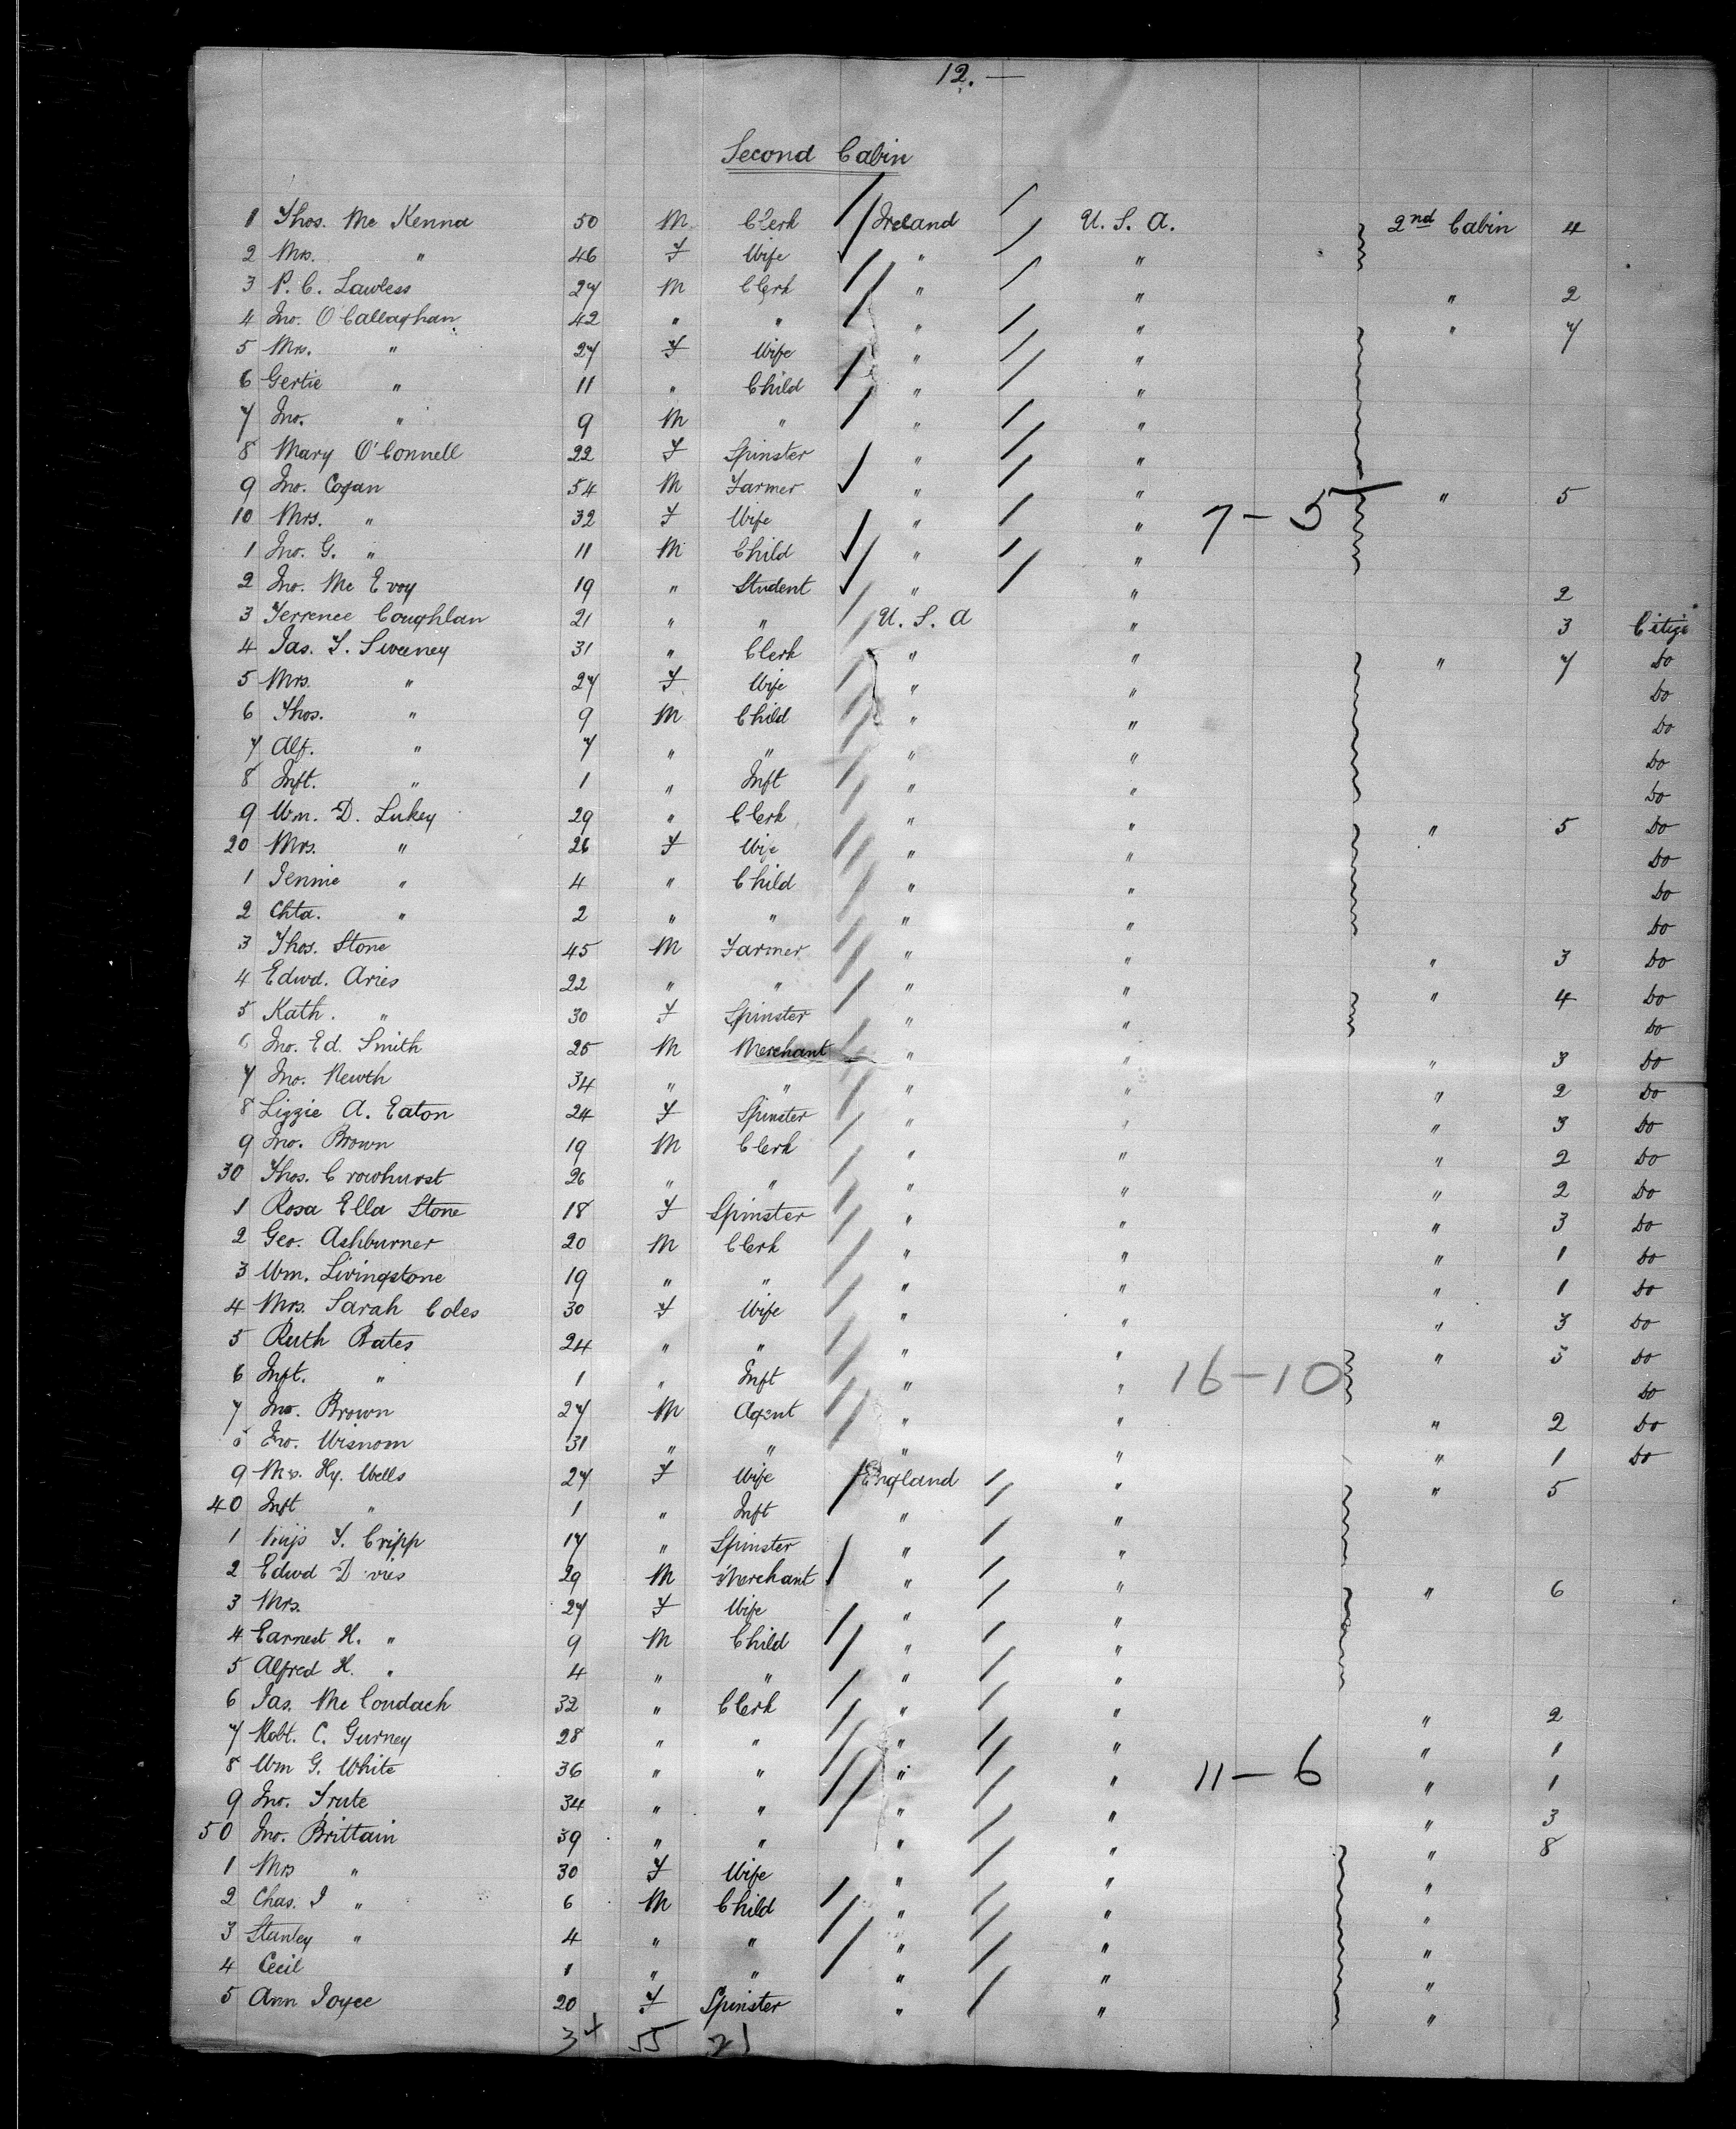 12. —
Second Cabin
1 Thos. Mc Kenna 50 M Clerk Ireland U. S. A. 2nd Cabin 4
2 Mrs. " 46 F Wife " "
3 P. C. Lawless 27 M Clerk " " " 2
4 Jno. O'Callaghan 42 " " " " " 7
5 Mrs. " 27 F Wife " "
6 Gertie " 11 " Child " "
7 Jno. " 9 M " " "
8 Mary O'Connell 22 F Spinster " "
9 Jno. Cogan 54 M Farmer " " " 5
10 Mrs. " 32 F Wife " " 7 - 5
1 Jno. G. " 11 M Child " "
2 Jno. Mc Evoy 19 " Student " " 2
3 Terrence Coughlan 21 " " U. S. A " 3 Citizn
4 Jas. F. Sweeney 31 " Clerk " " " 7 Do
5 Mrs. " 27 F Wife " " Do
6 Thos. " 9 M Child " " Do
7 Alf. " 7 " " " " Do
8 Inft. " 1 " Inft " " Do
9 Wm. D. Lukey 29 " Clerk " " " 5 Do
20 Mrs. " 26 F Wife " " Do
1 Jennie " 4 " Child " " Do
2 Chta. " 2 " " " " Do
3 Thos. Stone 45 M Farmer " " " 3 Do
4 Edwd. Aries 22 " " " " " 4 Do
5 Kath. " 30 F Spinster " " Do
6 Jno. Ed. Smith 25 M Merchant " " " 3 Do
7 Jno. Newth 34 " " " " " 2 Do
8 Lizzie A. Eaton 24 F Spinster " " " 3 Do
9 Jno. Brown 19 M Clerk " " " 2 Do
30 Thos. Crowhurst 26 " " " " " 2 Do
1 Rosa Ella Stone 18 F Spinster " " " 3 Do
2 Geo. Ashburner 20 M Clerk " " " 1 Do
3 Wm. Livingstone 19 " " " " " 1 Do
4 Mrs. Sarah Coles 30 F Wife " " " 3 Do
5 Ruth Bates 24 " " " " " 5 Do
6 Inft. " 1 " Inft " " 16 - 10 Do
7 Jno. Brown 27 M Agent " " " 2 Do
8 Jno. Wisnom 31 " " " " " 1 Do
9 Mrs. Hy. Wells 27 F Wife England " " 5
40 Inft " 1 " Inft " "
1 F. Cripp 17 " Spinster " "
2 Edwd 29 M Merchant " " " 6
3 Mrs. 27 F Wife " "
4 Earnest H. " 9 M Child " "
5 Alfred H. " 4 " " " "
6 Jas. Mc Condach 32 " Clerk " " " 2
7 Robt. C. Gurney 28 " " " " " 1
8 Wm G. White 36 " " " " 11 - 6 " 1
9 Jno. Trute 34 " " " " " 3
50 Jno. Brittain 39 " " " " " 8
1 Mrs " 30 F Wife " " "
2 Chas. J " 6 M Child " " "
3 Stanley " 4 " " " " "
4 Cecil 1 " " " " "
5 Ann Joyce 20 F Spinster " " "
55 21